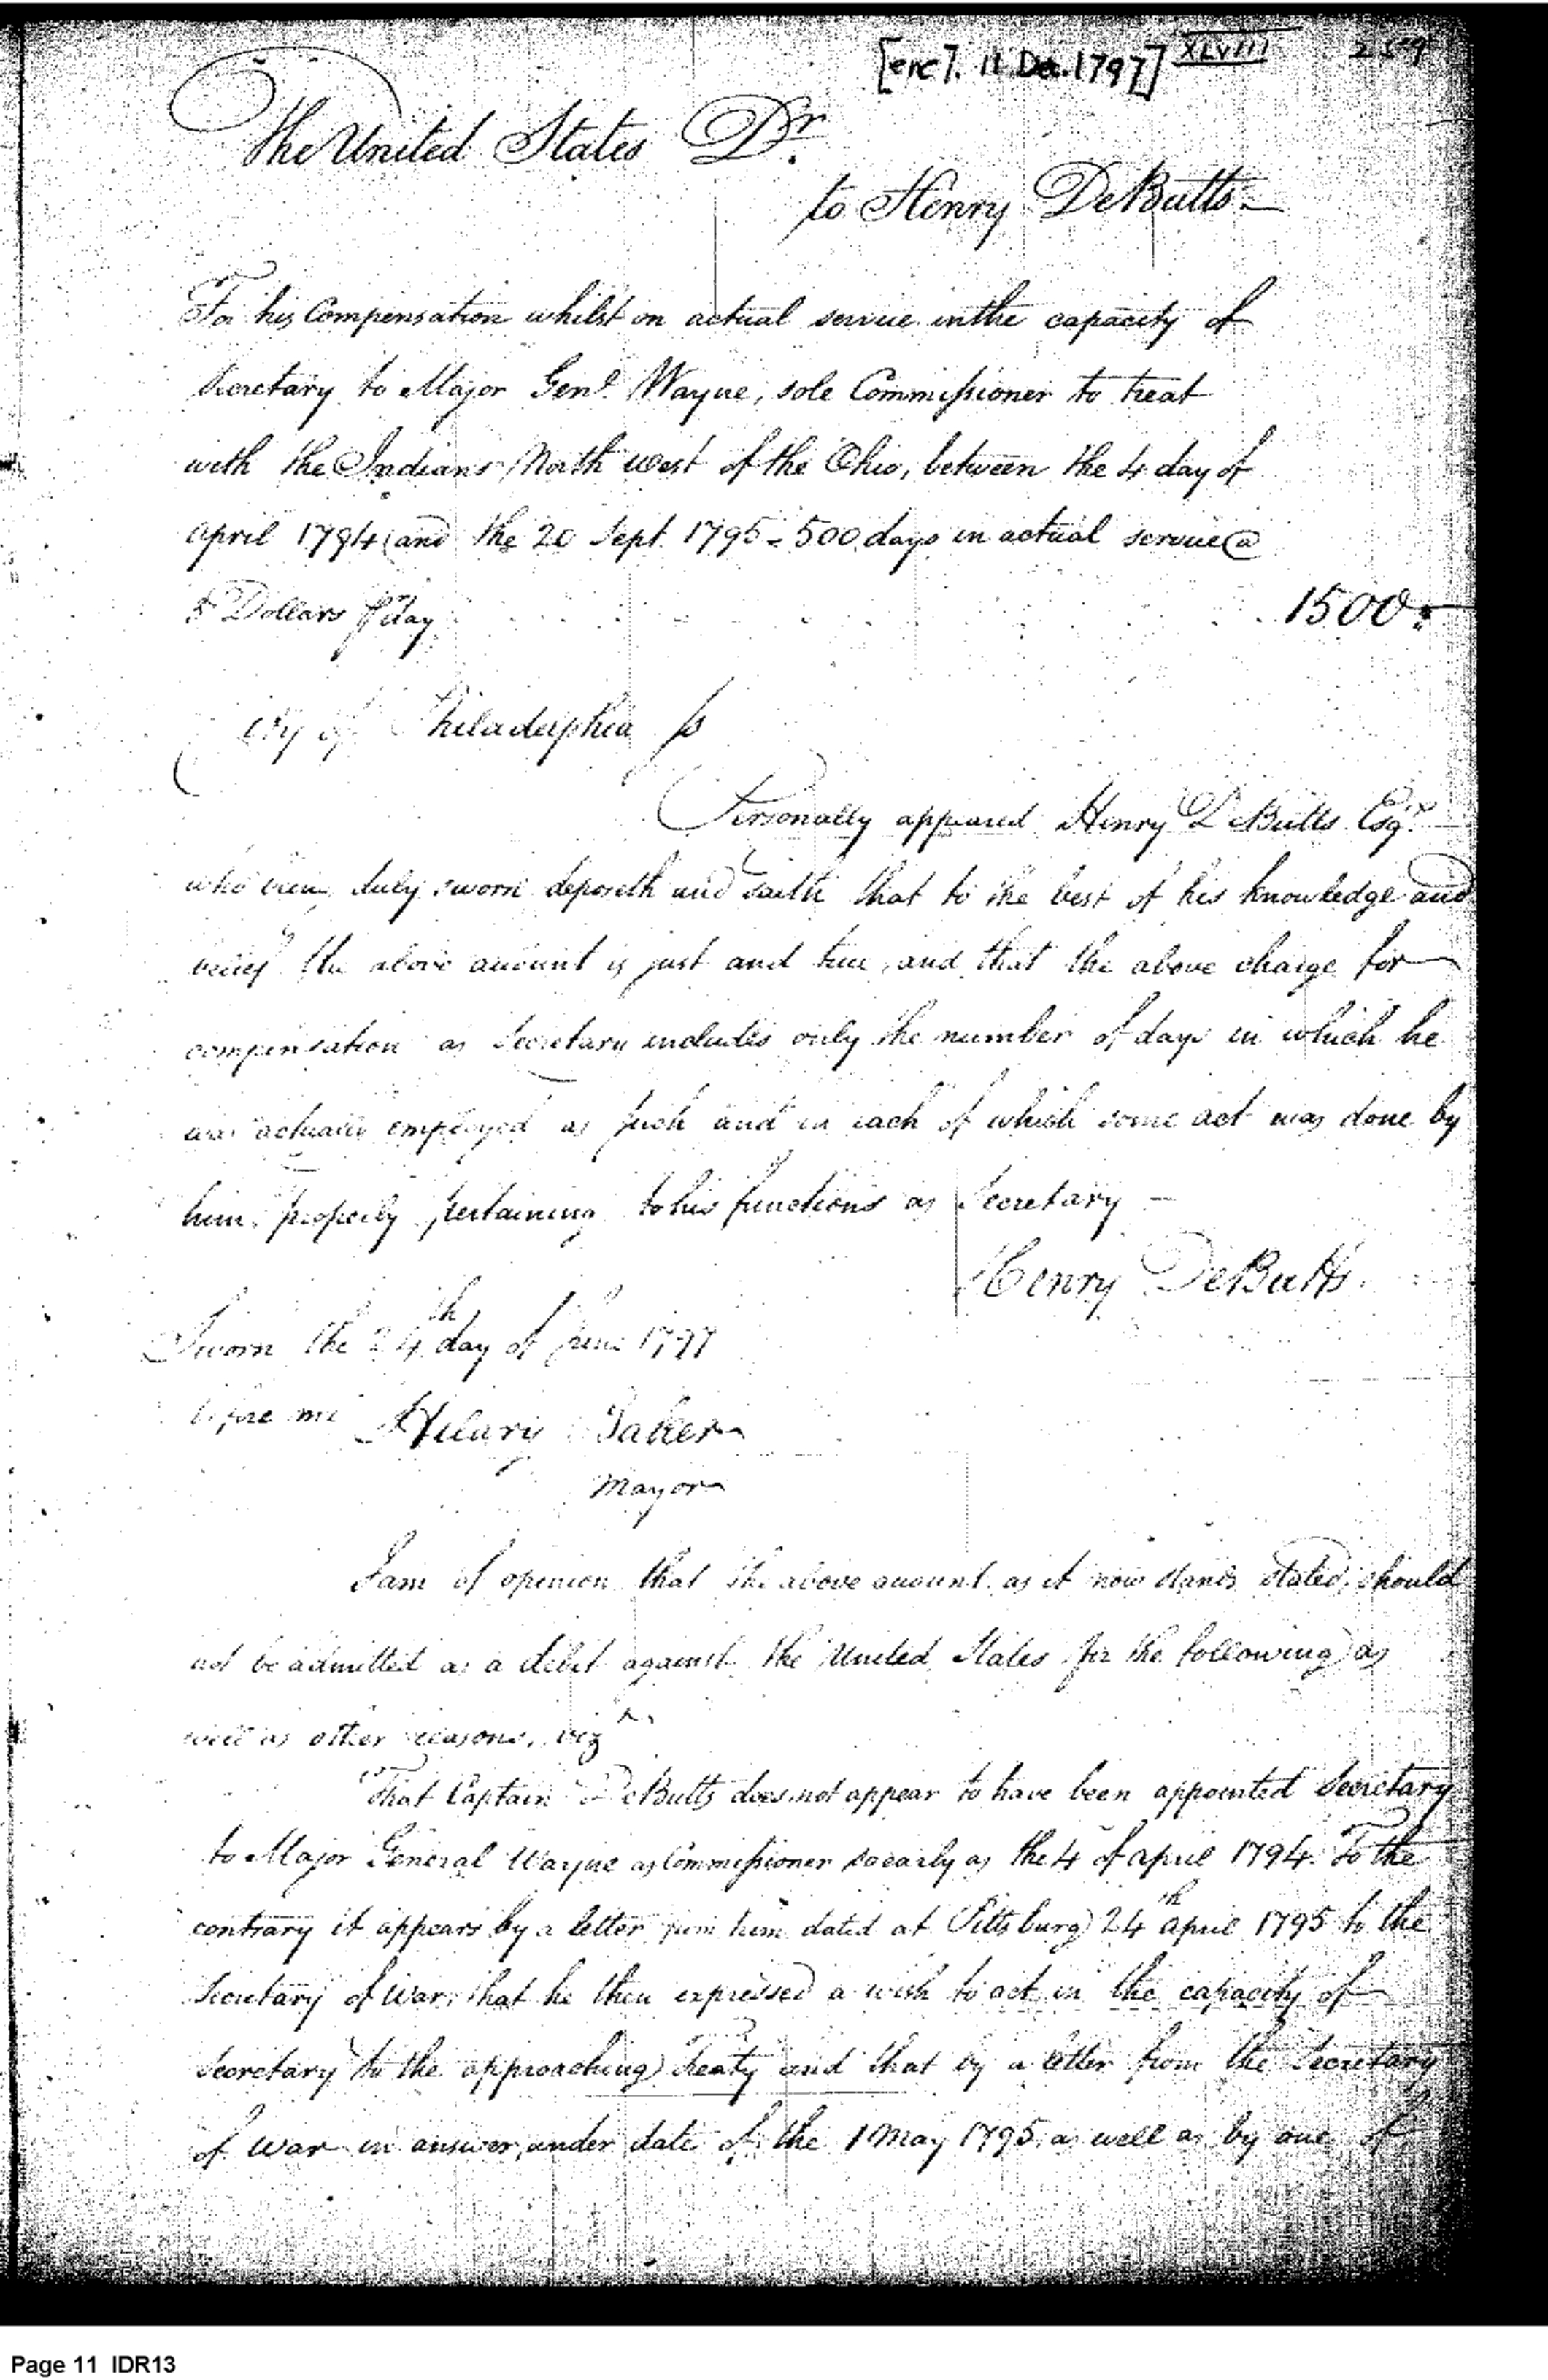 [enc]. 11 Dec. 1797] XLVIII 259
The United States Dr.
to Henry DeButts
For his Compensation whilst on actual service in the capacity of
Secretary to Major Genl. Wayne, sole Commissioner to treat
with the Indians North west of the Ohio, between the 4 day of
april 1794 and the 20 Sept. 1795 = 500 days in actual service @
3 Dollars P day 1500.
City of Philadelphia ss
Personally appeared Henry DeButts Esqr.
who being duly sworn deposeth and saith that to the best of his knowledge and
belief the above account is just and true, and that the above charge for
compensation as Secretary includes only the number of days in which he
was actually employed as such and in each of which some act was done by
him, properly pertaining to his functions as Secretary —
Henry DeButts.
Sworn the 24th day of June 1797
before me Hilary Baker
Mayor
I am of opinion that the above account as it now stands stated, should
not be admitted as a debit against the United States for the following as
well as other reasons, viz
That Captain DeButts does not appear to have been appointed Secretary
to Major General Wayne as Commissioner so early as the 4 of april 1794. To the
contrary it appears by a letter from him dated at Pittsburg 24th april 1795 to the
Secretary of War, that he then expressed a wish to act in the capacity of
Secretary to the approaching Treaty and that by a letter from the Secretary
of War in answer, under date of the 1 May 1795 as well as by one of
Page 11 IDR13